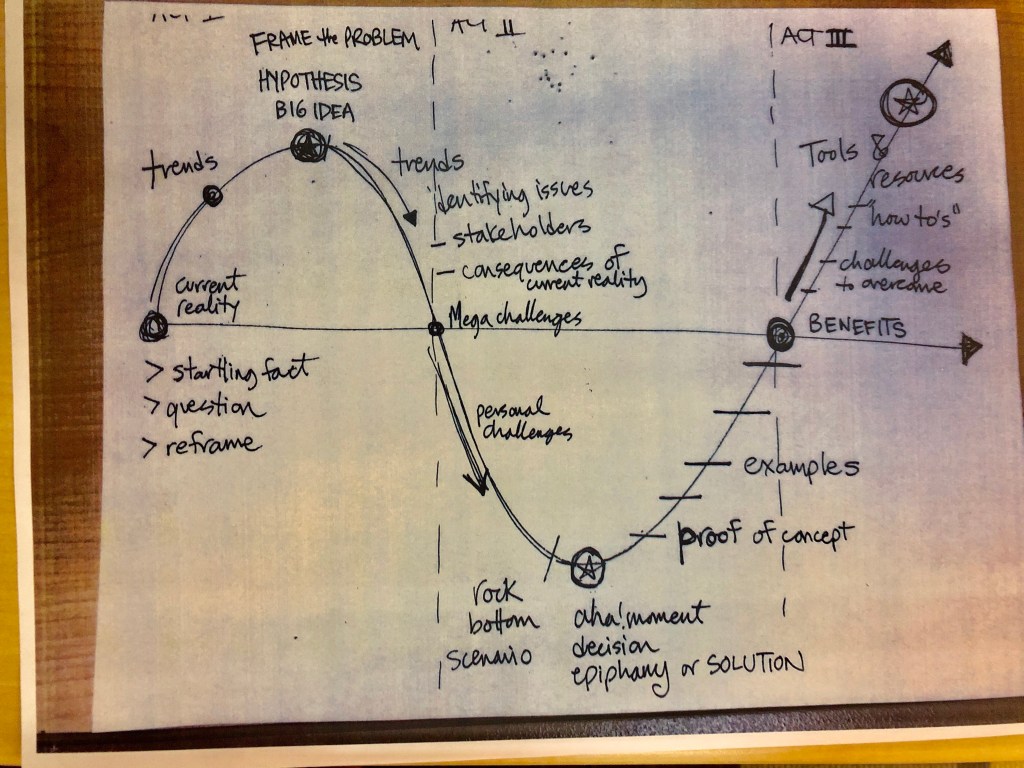 ACT I
FRAME the PROBLEM
HYPOTHESIS
BIG IDEA
trends
current
reality
> startling fact
> question
> reframe
ACT II
trends
identifying issues
- stakeholders
- consequences of
current reality
Mega challenges
personal
challenges
rock
bottom
scenario
aha! moment
decision
epiphany or SOLUTION
proof of concept
examples
ACT III
Tools &
resources
"how to's"
challenges
to overcome
BENEFITS